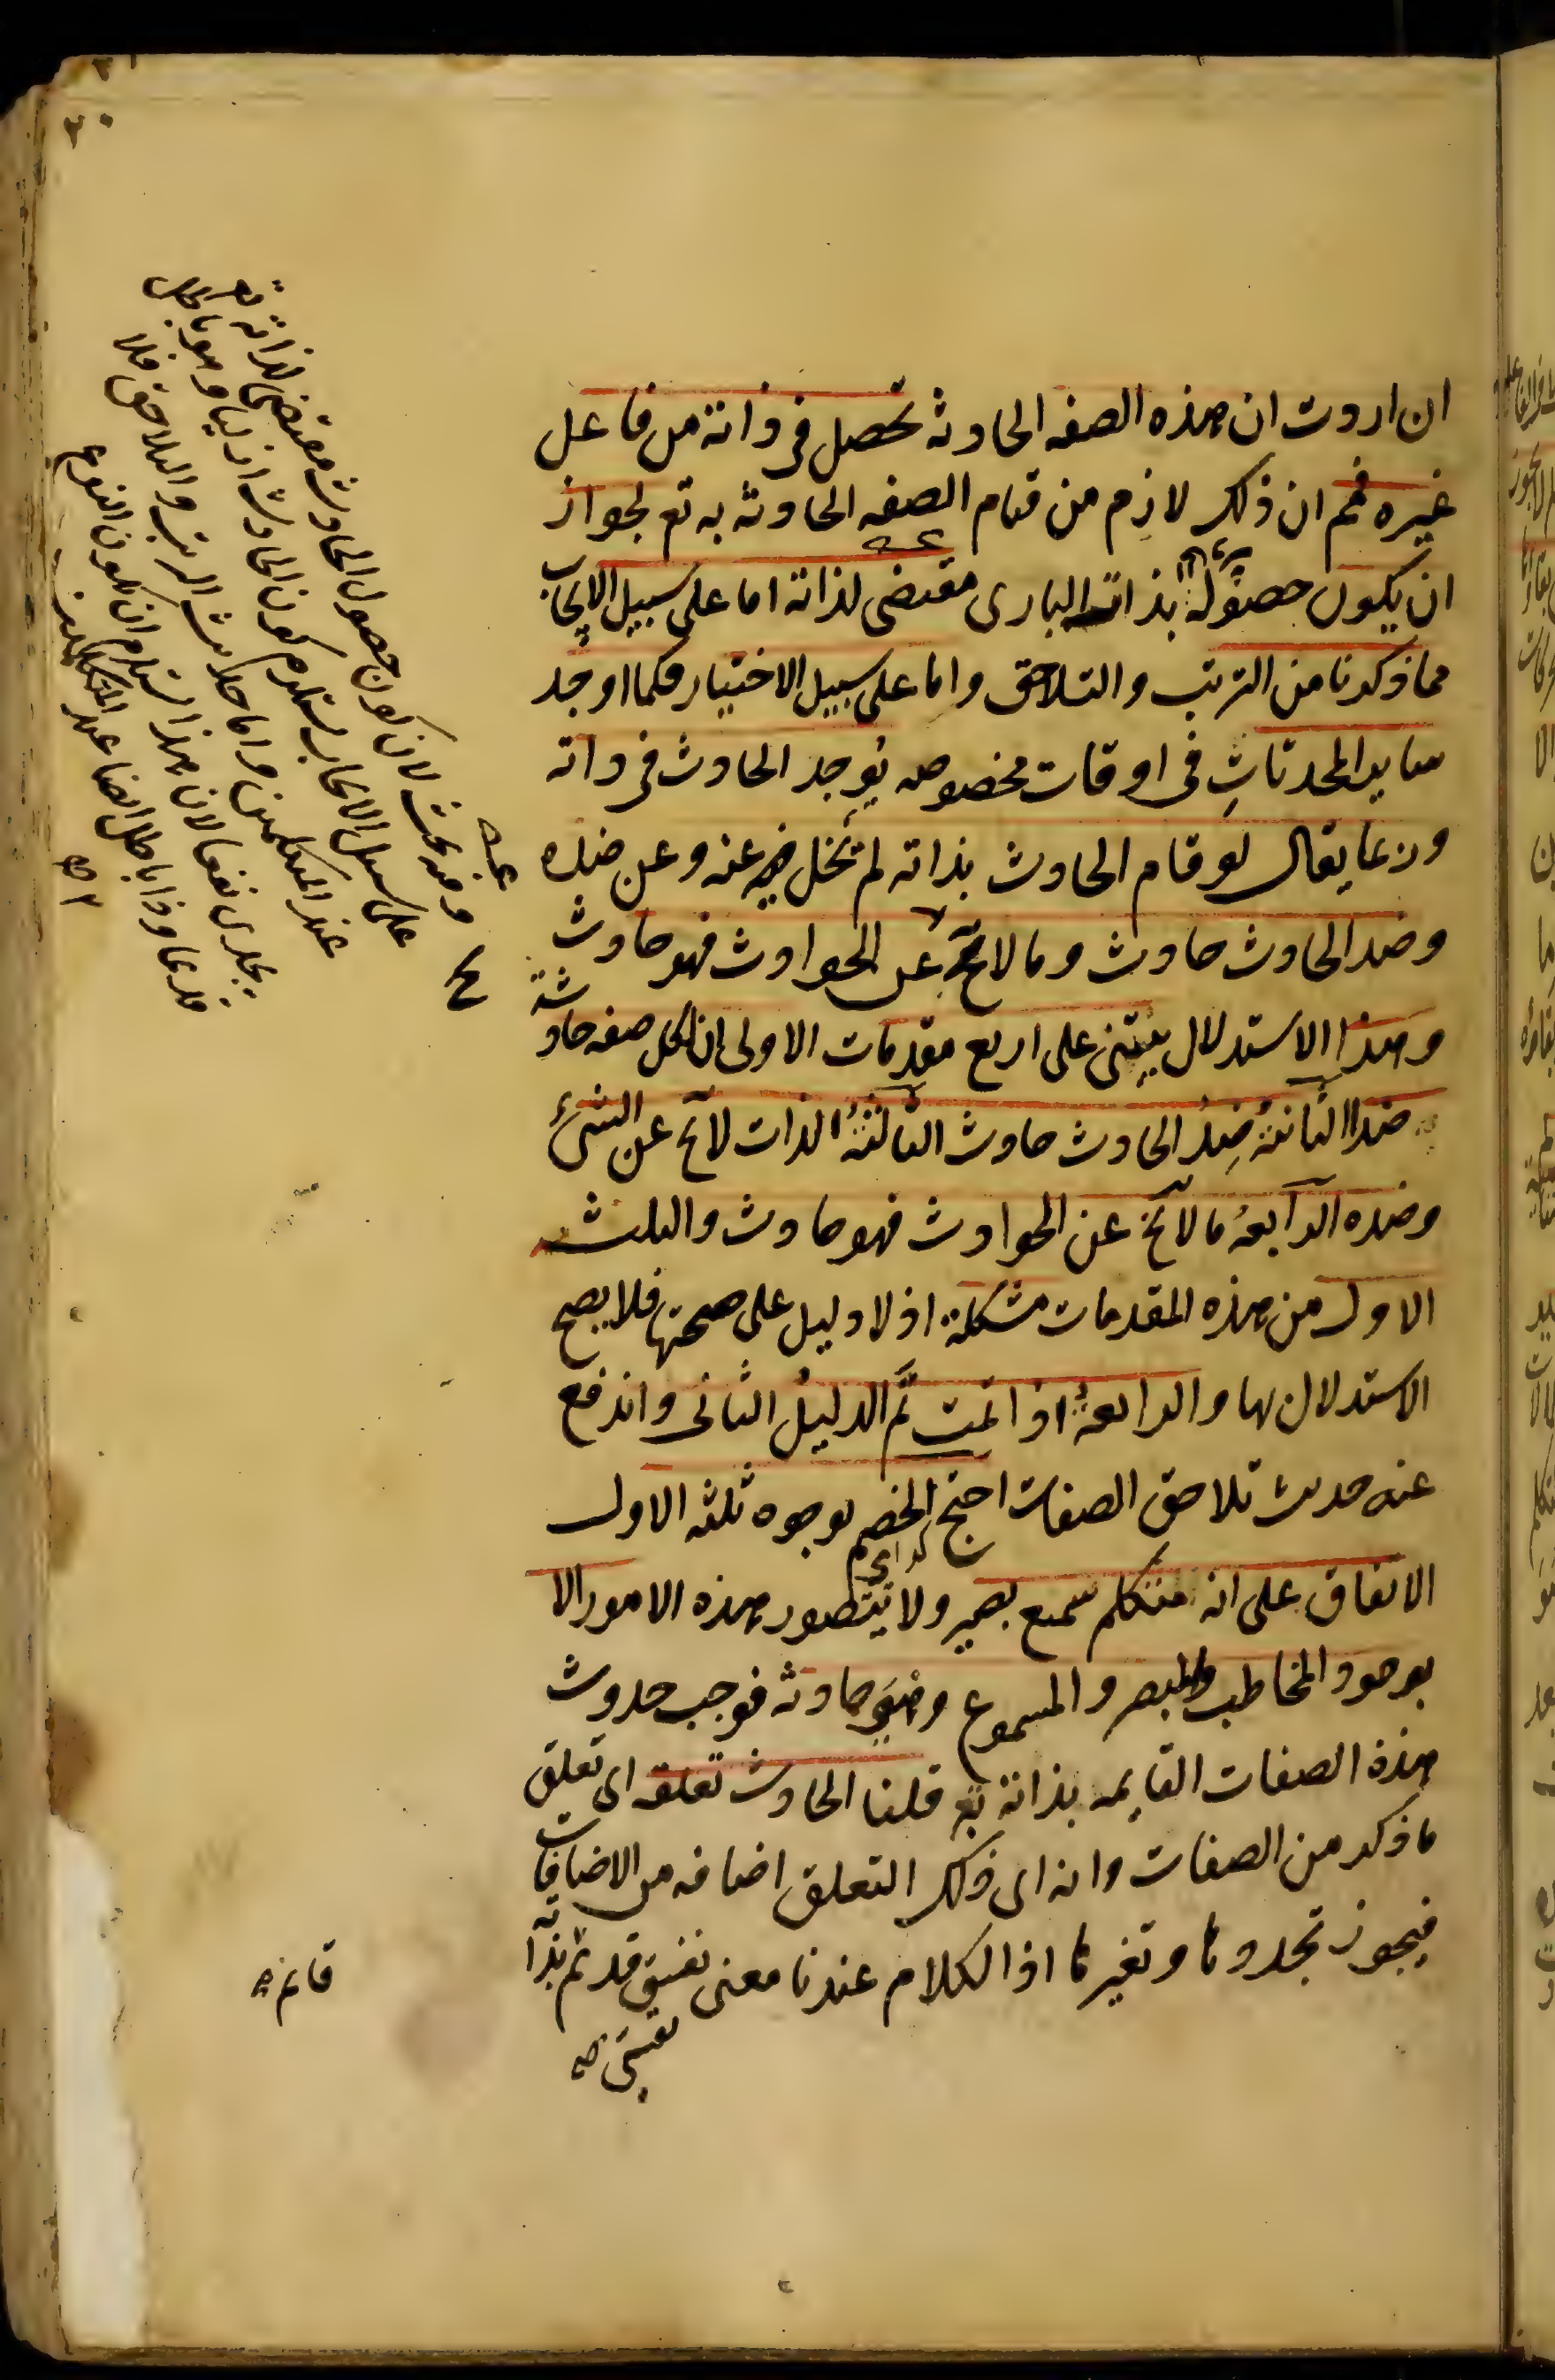 ان اردت ان هذه الصفه الحادثه تحصل فى ذاته من فاعل
غيره فمم ان ذلك لازم من قيام الصفه الحادثه به تع لجواز
ان يكون حصوله بذات البارى مقتضى لذاته اما على سبيل الايجاب
مما ذكرنا من الترتب والتلاحق واما على سبيل الاختيار فكما اوجد
ساير المحدثات فى اوقات مخصوصه يوجد الحادث فى ذاته
وربما يقال لو قام الحادث بذاته لم تخل عنه وعن ضده
وضد الحادث حادث وما لا يخ عن الحوادث فهو حادث
وهذا الاستدلال يبتنى على اربع مقدمات الاولى ان لكل صفه حادثة
ضدا الثانية ضد الحادث حادث الثالثة الذات لا يخ عن الشئ
وضده الرابعة ما لا يخ عن الحوادث فهو حادث والثلث
الاول من هذه المقدمات مشكلة اذ لا دليل على صحتها فلا يصح
الاستدلال بها والرابعة اذا تمت تم الدليل الثانى واندفع
عنه حديث تلاحق الصفات احتج الخصم بوجوه ثلثه الاول
الاتفاق على انه متكلم سميع بصير ولا يتصور هذه الامور الا
بوجود المخاطب والمبصر والمسموع وهى حادثه فوجب حدوث
هذه الصفات القايمه بذاته تع قلنا الحادث تعلقه اى تعلق
ما ذكر من الصفات وانه اى ذلك التعلق اضافه من الاضافات
فيجوز تجددها وتغيرها اذ الكلام عندنا معنى نفسى قديم بذاته
قائم صح
نفسى صح
وفيه بحث لان كون حصول الحادث مقتضى لذاته تع
على سبيل الايجاب يستلزم كون الحادث ازليا وهو باطل
عند المتكلمين واما حديث الترتب والتلاحق فلا
يجدى نفعا لان هذا يستلزم ان يكون النوع
قديما وذا باطل ايضا عند المتكلمين